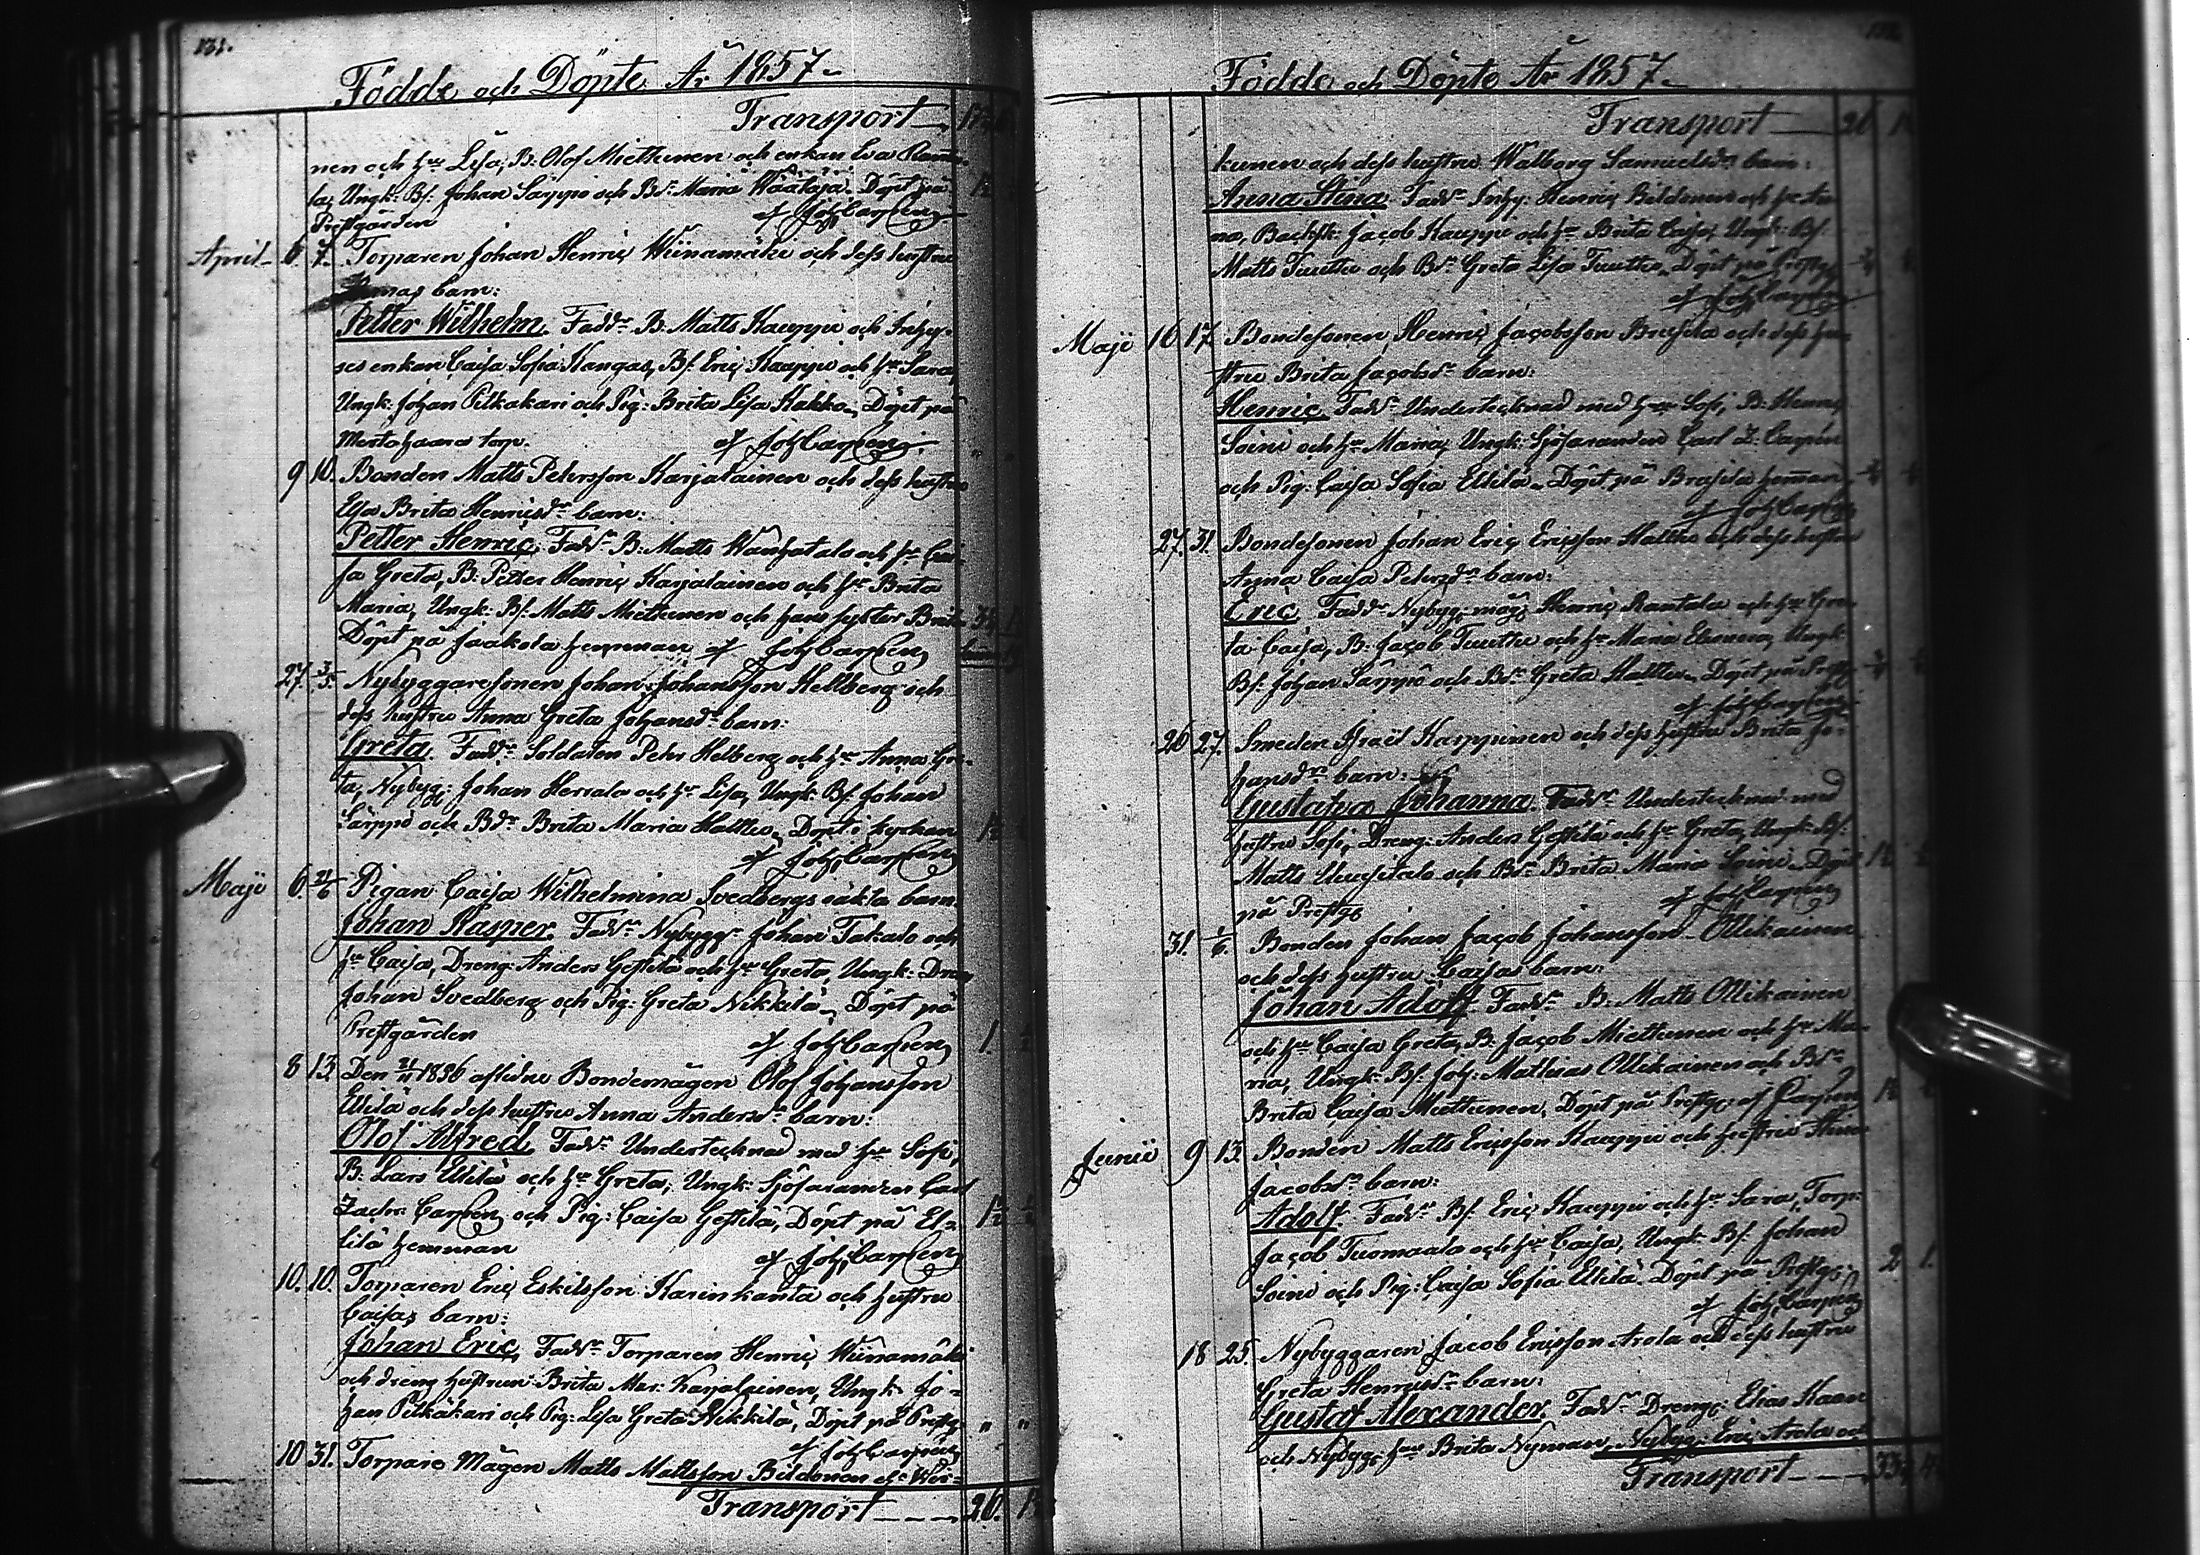 131.
Födde och Döpte År 1857
Transport
nen och hu Lisa, B. Olof Miettunen och enkan Eva
la, Ungk: Bs. Johan Säppö och Bdr Maria Wäätäjä. Döpt på
Prestgården af Joh Carpen
April 6. 7. Torparen Johan Henric Wiinamäki och dess hustru
barn:
Petter Wilhelm. Fadd. B. Matts Kauppi och Inhy-
ses enkan Caisa Sofia Kangas, Bs. Eric Kauppi och hu Sara,
Ungk. Johan Pitkakari och Pig: Brita Lisa Hakko. Döpt på
torp. af Joh Carpen
9 10. Bonden Matts Petersson Karjalainen och dess hustru
Elsa Brita Henricsdr barn:
Petter Henric. Fadd. B. Matts och hu Cai-
sa Greta, B: Petter Henric Karjalainen och hu Brita
Maria, Ungk: Bs. Matts Miettunen och hans syster Brita
Döpt på Jaakola hemman af Joh Carpen
27. 3/5. Nybyggaresonen Johan Johansson Hellberg och
dess hustru Anna Greta Johansdr barn:
Greta. Fadd. Soldaten Petter Helberg och hu Anna Gre-
ta, Nybygg: Johan Herrala och hu Lisa, Ungk. Bs. Johan
Säppö och Bdr Brita Maria Halttu. Döpt i kyrkan
af Joh Carpen
Maji 6. Pigan Caisa Wilhelmina Svedbergs oäkta barn
Johan Kasper. Fadd. Nybygg. Johan Takalo och
hu Caisa, Dreng: Anders Gestilä och hu Greta, Ungk: Dreng
Johan Svedberg och Pig: Greta Nikkilä. Döpt på
Prestgården af Joh Carpen 1.
8 13. Den 21/11 1856 aflidne Bondemågen Olof Johansson
Eltilä och dess hustru Anna Andersdr barn:
Olof Alfred. Fadd. Undertecknad med hu Sofi,
B. Lars Eltilä och hu Greta, Ungk: Sjöfaranden Carl
Zachr: Carpen och Pig: Caisa Gestilä, Döpt på El-
tilä hemman af Joh Carpen
10. 10. Torparen Eric Eskilsson Karinkanta och hustru
Caisas barn:
Johan Eric. Fadd. Torparen Henric Wiinamäki
och dreng hustrun Brita Mar: Karjalainen, Ungk Jo-
han Pitkäkari och Pig: Lisa Greta Nikkilä, Döpt på Prestg.
af Joh Carpen
10 31. Torpare Mågen Matts Mattsson Bildonen
Transport 26.
Födde och Döpte År 1857
Transport 26
kunen och dess hustru Walborg Samuelsdr barn:
Anna Stina. Fadd. Inhy. Henric Bildonen och hu An-
na, Jacob Kauppi och hu Brita Caisa, Ungk. Bs.
Matts Tuuttu och Bdr Greta Lisa Tuuttu. Döpt på Prestg.
af Joh Carpen
Maji 16 17 Bondesonen Henric Jacobsson Brusila och dess hu-
stru Brita Jacobsdr barn:
Henric. Fadd. Undertecknad med hu Sofi, B. Henric
Soini och hu Maria, Ungk. Sjöfaranden Carl Z. Carpen
och Pig: Caisa Sofia Eltilä. Döpt på Brusila hemman
af Joh Carpen
27. 31. Bondesonen Johan Eric Ericsson Halttu och dess hustru
Anna Caisa Petersdr barn:
Eric. Fadd. Nybygg: måg Henric Rantala och hu Gre-
ta Caisa, B. Jacob Tuuttu och hu Maria Ungk
Bs. Johan Säppö och Bdr Greta Halttu. Döpt på Prestg
af Joh Carpen
26 27. Smeden Israël Karppinen och dess hustru Brita Jo-
hansdr barn:
Gustafva Johanna. Fadd. Undertecknad med
hustru Sofi, Dreng: Anders Gestilä och hu Greta, Ungk. Bs:
Matts Uusitalo och Bdr Brita Maria Soini. Döpt
på Prestg. af Joh Carpen
31. 1/6. Bonden Johan Jacob Johansson Ollikainen
och dess hustru Caisas barn:
Johan Adolf. Fadd. B. Matts Ollikainen
och hu Caisa Greta, B. Jacob Miettunen och hu Ma-
ria, Ungk: Bs. Joh: Mathias Ollikainen och Bdr
Brita Caisa Miettunen, Döpt på Prestg. af Carpen
Junii 9 13 Bonden Matts Ericsson Kauppi och hustru Stina
Jacobsdr barn:
Adolf. Fadd. Bs. Eric Kauppi och hu Sara, Torp:
Jacob Tuomaala och hu Caisa, Ungk. Bs. Johan
Soini och Pig: Caisa Sofia Eltilä. Döpt på Prestg. 2 1.
af Joh Carpen
18 25. Nybyggaren Jacob Ericsson Arola och dess hustru
Greta Henricsdr barn:
Gustaf Alexander. Fadd. Dreng: Elias Kaan
och Nybygg. hu Brita Nyman, Nybygg: Eric Arola och
Transport 33